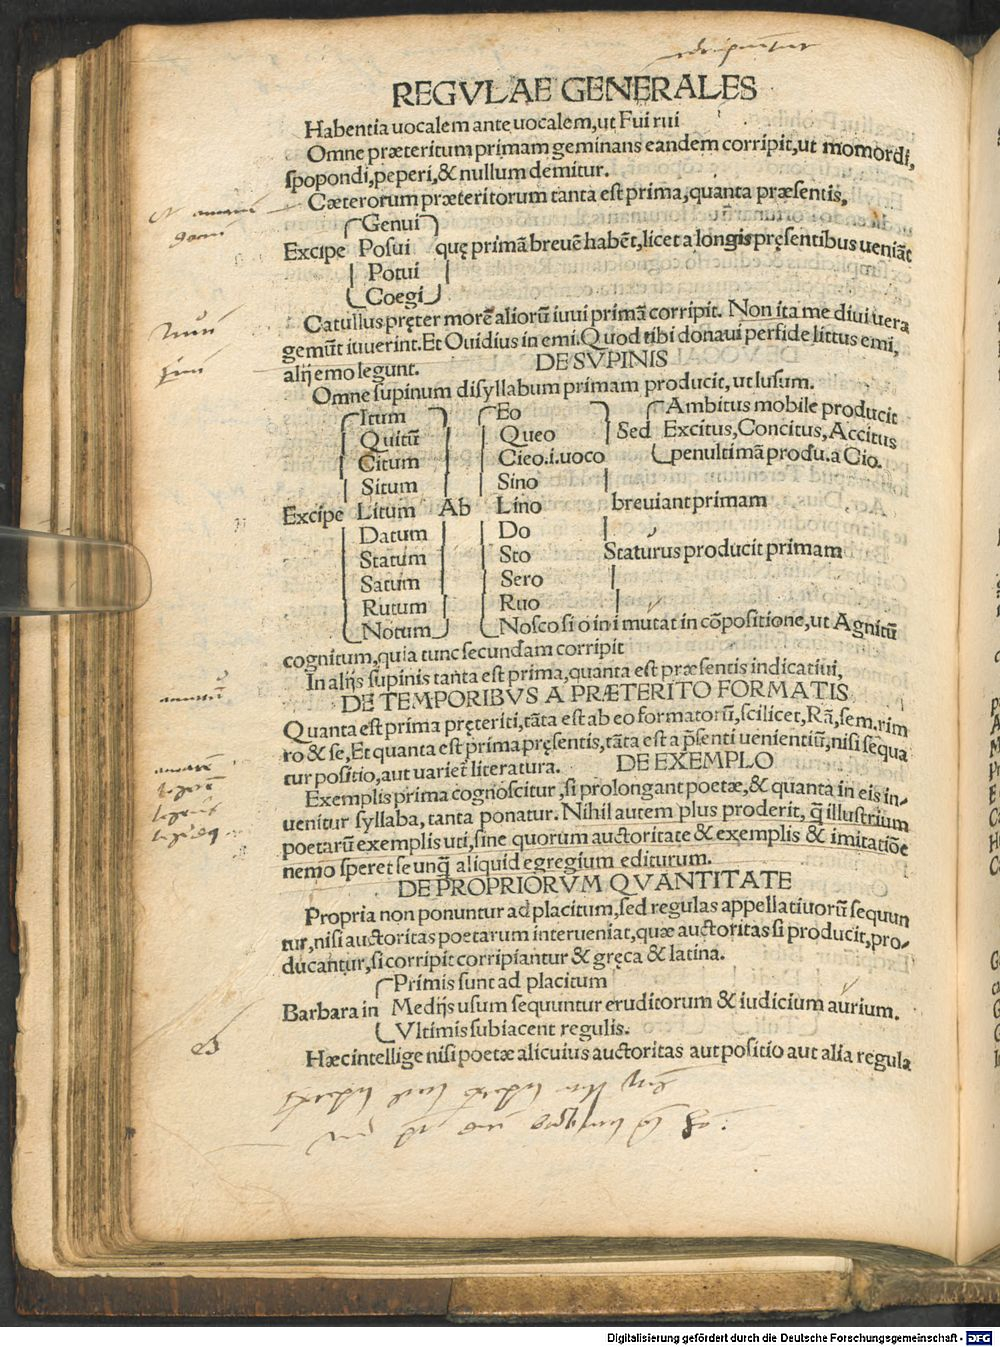 REGVLAE GENERALES
Habentia uocalem ante uocalem,ut Fui rui
Omne præteritum primam geminans eandem corripit,ut momordi,
spopondi,peperi,& nullum demitur.
Cæterorum præteritorum tanta est prima,quanta præsentis,
Genui
Excipe Posui quę primã breuẽ habẽt,licet a longis pręsentibus ueniãt
Potui
Coegi
Catullus pręter morẽ aliorũ iuui primã corripit. Non ita me diui uera
gemũt iuuerint.Et Ouidius in emi.Quod tibi donaui perfide littus emi,
alij emo legunt. DE SVPINIS
Omne supinum disyllabum primam producit,ut lusum.
Itum Eo Ambitus mobile producit
Quitũ Queo Sed Excitus,Concitus,Accitus
Citum Cieo.i.uoco penultimã produ.a Cio.
Situm Sino
Excipe Litum Ab Lino breuiant primam
Datum Do
Statum Sto Staturus producit primam
Satum Sero
Rutum Ruo
Notum Nosco si o in i mutat in cõpositione,ut Agnitũ
cognitum,quia tunc secundam corripit
In alijs supinis tanta est prima,quanta est præsentis indicatiui,
DE TEMPORIBVS A PRÆTERITO FORMATIS
Quanta est prima pręteriti,tãta est ab eo formatorũ,scilicet,Rã,sem.rim
ro & se,Et quanta est prima pręsentis,tãta est a p̃senti uenientiũ,nisi sequa
tur positio,aut uariet̃ literatura. DE EXEMPLO
Exemplis prima cognoscitur,si prolongant poetæ,& quanta in eis in-
uenitur syllaba,tanta ponatur. Nihil autem plus proderit, q̃ illustrium
poetarũ exemplis uti,sine quorum auctoritate & exemplis & imitatiõe
nemo speret se unq̃ aliquid egregium editurum.
DE PROPRIORVM QVANTITATE
Propria non ponuntur ad placitum,sed regulas appellatiuorũ sequun
tur,nisi auctoritas poetarum interueniat,quæ auctoritas si producit,pro-
ducantur,si corripit corripiantur & gręca & latina.
Primis sunt ad placitum
Barbara in Medijs usum sequuntur eruditorum & iudicium aurium.
Vltimis subiacent regulis.
Hæc intellige nisi poetæ alicuius auctoritas aut positio aut alia regula
Digitalisierung gefördert durch die Deutsche Forschungsgemeinschaft - DFG